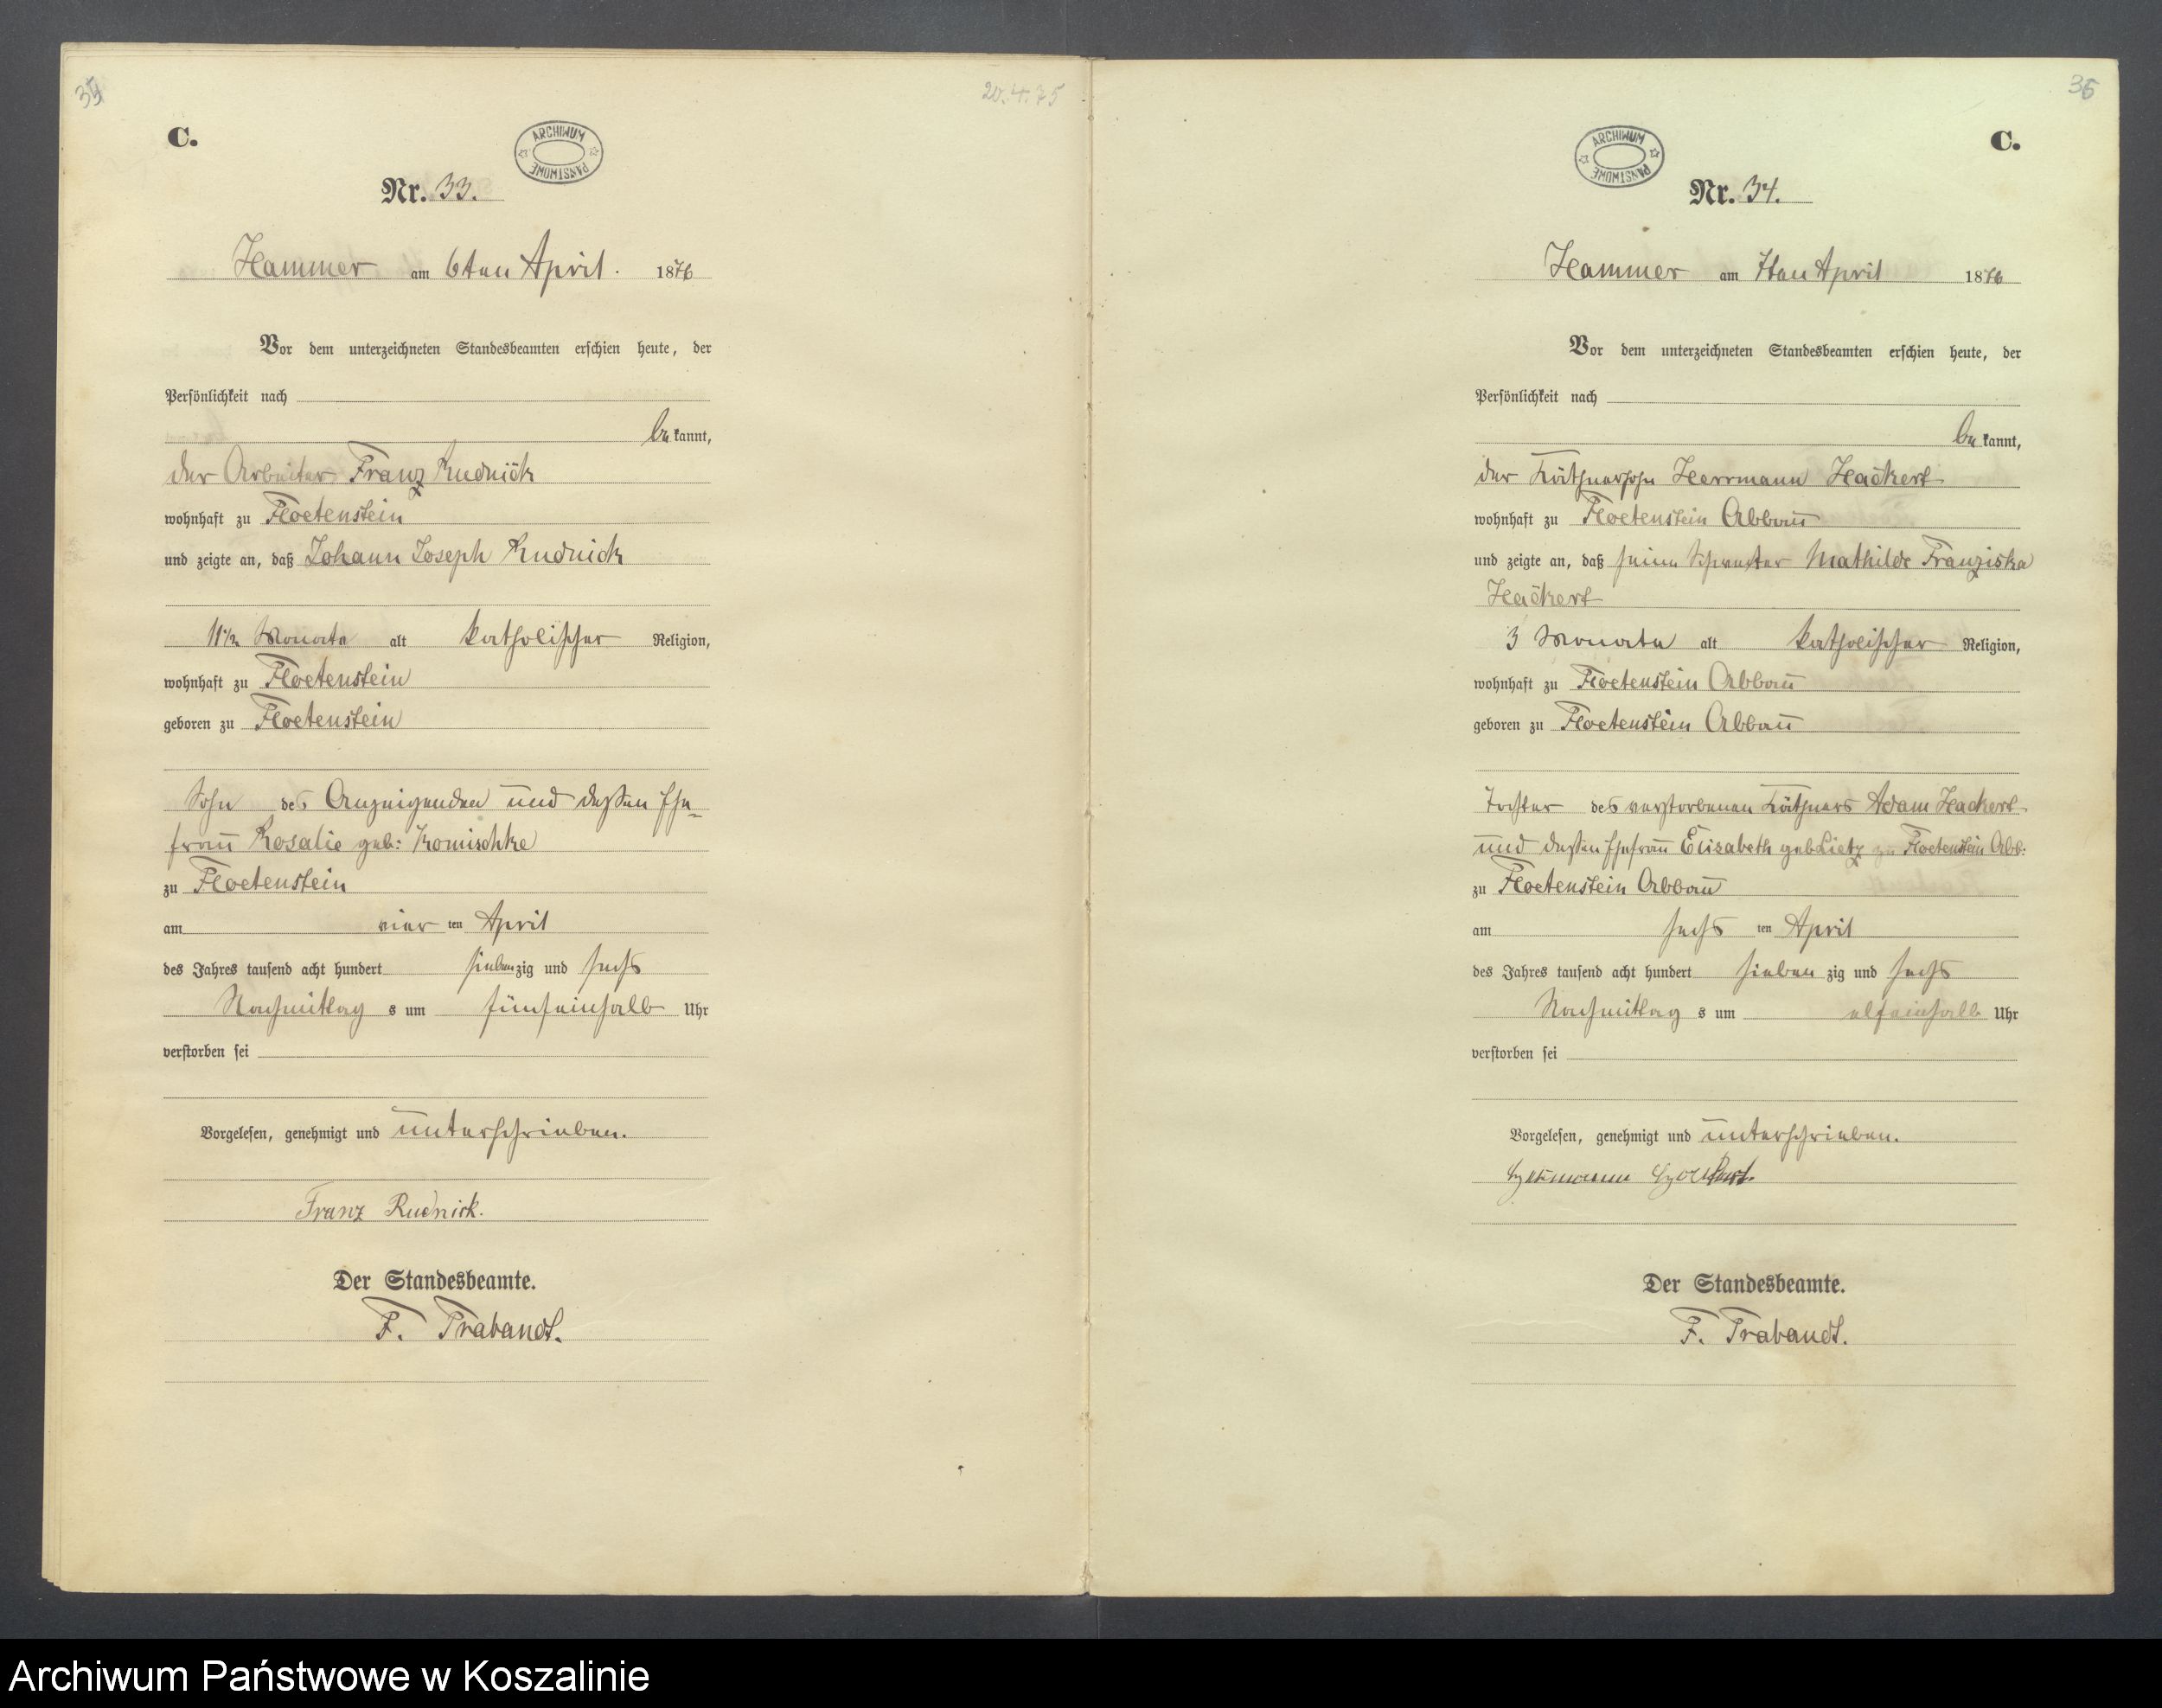 35
20.4.75
C.
ARCHIWUM PAŃSTWOWE
Nr. 33.
Hammer am 6ten April. 1876
Vor dem unterzeichneten Standesbeamten erschien heute, der
Persönlichkeit nach
be kannt,
der Arbeiter Franz Rudnick
wohnhaft zu Floetenstein
und zeigte an, daß Johann Joseph Rudnick
11½ Monate alt katholischer Religion,
wohnhaft zu Floetenstein
geboren zu Floetenstein
Sohn des Anzeigenden und dessen Ehe-
frau Rosalie geb: Komischke
zu Floetenstein
am vier ten April
des Jahres tausend acht hundert siebenzig und sechs
Nachmittag s um fünfeinhalb Uhr
verstorben sei
Vorgelesen, genehmigt und unterschrieben.
Franz Rudnick.
Der Standesbeamte.
F. Trabandt.
36
C.
ARCHIWUM PAŃSTWOWE
Nr. 34.
Hammer am 7ten April 1876
Vor dem unterzeichneten Standesbeamten erschien heute, der
Persönlichkeit nach
be kannt,
der Käthnersohn Herrmann Hackert
wohnhaft zu Floetenstein Abbau
und zeigte an, daß seine Schwester Mathilde Franziska
Hackert
3 Monate alt katholischer Religion,
wohnhaft zu Floetenstein Abbau
geboren zu Floetenstein Abbau
Tochter des verstorbenen Käthners Adam Hackert
und dessen Ehefrau Elisabeth geb Lietz zu Floetenstein Abb:
zu Floetenstein Abbau
am sechs ten April
des Jahres tausend acht hundert sieben zig und sechs
Nachmittag s um elfeinhalb Uhr
verstorben sei
Vorgelesen, genehmigt und unterschrieben.
Herrmann Hackert.
Der Standesbeamte.
F. Trabandt.
Archiwum Państwowe w Koszalinie